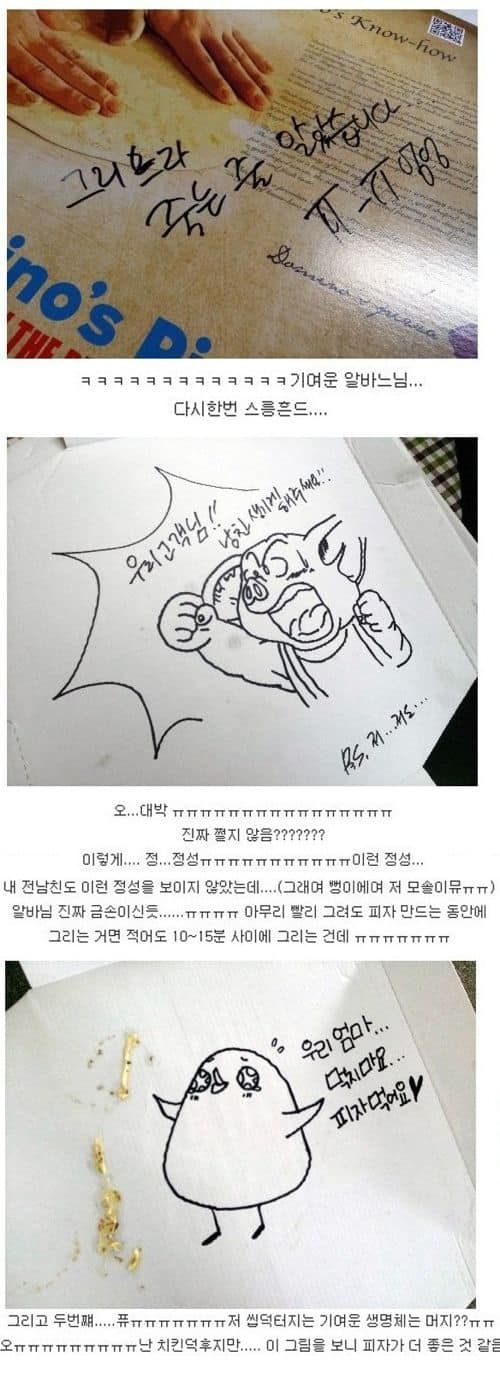 's Know-how
그리흐라
죽는 줄 알았습니다
ㅠ_ㅠ 엉엉
Domino's pizza
ino's Pi
THE
ㅋㅋㅋㅋㅋㅋㅋㅋㅋㅋㅋㅋㅋ기여운 알바느님...
다시한번 스릉흔드....
우리고객님!!
남친 생기게
해주세요!!
P.S. 저...저도...
오...대박 ㅠㅠㅠㅠㅠㅠㅠㅠㅠㅠㅠㅠㅠㅠㅠㅠ
진짜 쩔지 않음???????
이렇게.... 정...정성ㅠㅠㅠㅠㅠㅠㅠㅠㅠㅠㅠ이런 정성...
내 전남친도 이런 정성을 보이지 않았는데....(그래여 뻥이에여 저 모솔이뮤ㅠㅠ)
알바님 진짜 금손이신듯......ㅠㅠㅠㅠ 아무리 빨리 그려도 피자 만드는 동안에
그리는 거면 적어도 10~15분 사이에 그리는 건데 ㅠㅠㅠㅠㅠㅠㅠ
우리 엄마...
닥치마요...
피자먹어요♥
그리고 두번째.....퓨ㅠㅠㅠㅠㅠㅠㅠ저 씹덕터지는 기여운 생명체는 머지??ㅠㅠ
오ㅠㅠㅠㅠㅠㅠㅠㅠㅠ난 치킨덕후지만..... 이 그림을 보니 피자가 더 좋은 것 같음